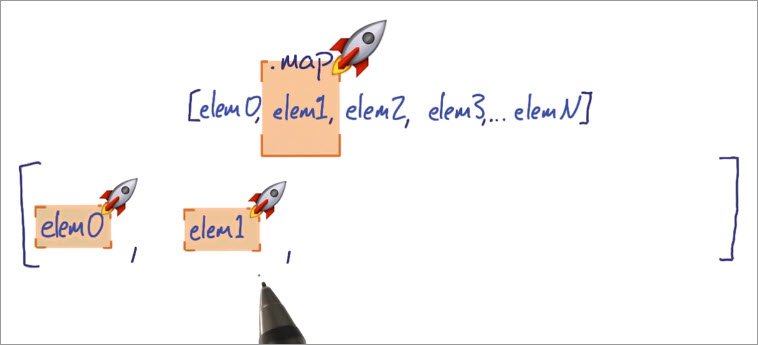 .map
[elem0, elem1, elem2, elem3,... elemN]
[elem0, elem1, ]